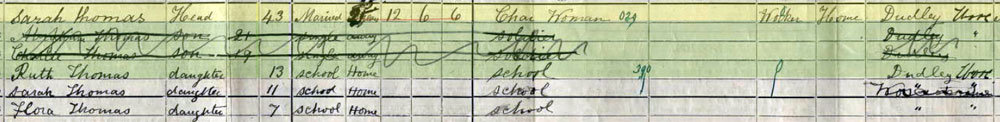 Sarah Thomas Head 43 Married 12 6 6 Char Woman 029 Home Dudley Worc
Thomas son 21 single away soldier Dudley "
Charlie Thomas son 19 single away soldier Dudley
Ruth Thomas daughter 13 school Home school 390 Dudley Worc
Sarah Thomas daughter 11 school Home school "
Flora Thomas daughter 7 school Home school " "